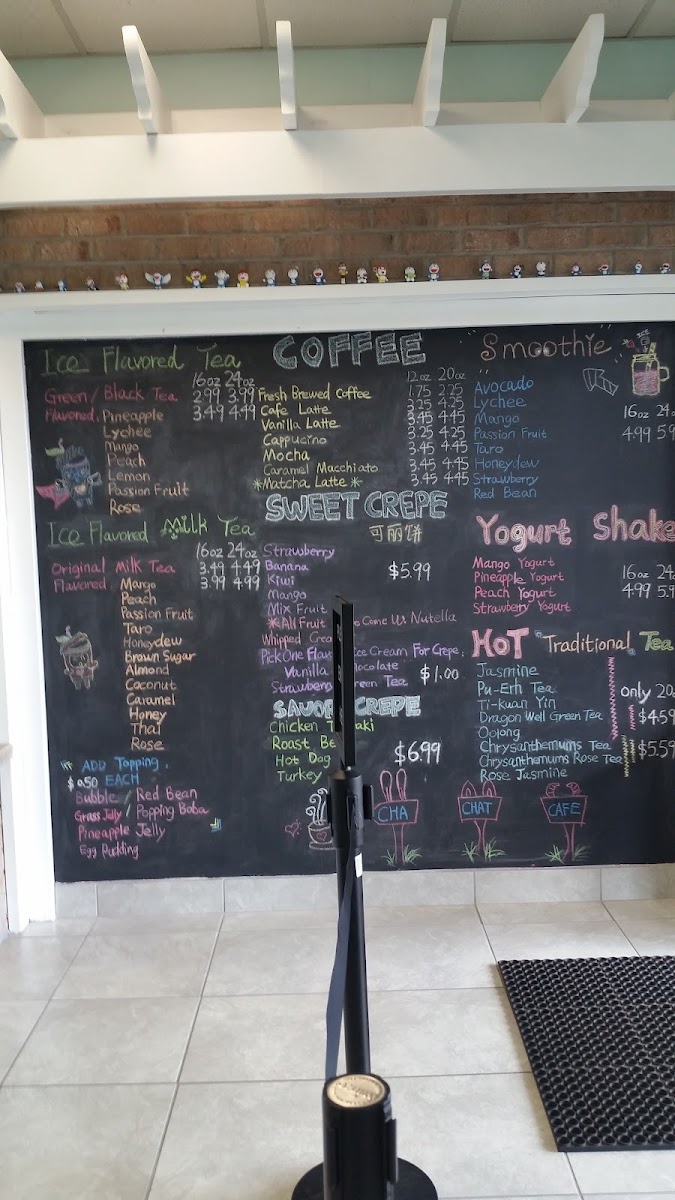 Ice Flavored Tea
16oz 24oz
Green / Black Tea 2.99 3.99
Flavored 3.49 4.49
Pineapple
Lychee
Mango
Peach
Lemon
Passion Fruit
Rose
Ice Flavored Milk Tea
16oz 24oz
Original Milk Tea 3.49 4.49
Flavored 3.99 4.99
Mango
Peach
Passion Fruit
Taro
Honeydew
Brown Sugar
Almond
Coconut
Caramel
Honey
Thai
Rose
ADD Topping
$0.50 EACH
Bubble / Red Bean
Grass Jelly / Popping Boba
Pineapple Jelly
Egg Pudding
COFFEE
12oz 20oz
Fresh Brewed Coffee 1.75 2.25
Cafe Latte 3.25 4.25
Vanilla Latte 3.45 4.45
Cappucino 3.25 4.25
Mocha 3.45 4.45
Caramel Macchiato 3.45 4.45
*Matcha Latte* 3.45 4.45
SWEET CREPE
可丽饼
Strawberry
Banana $5.99
Kiwi
Mango
Mix Fruit
*All Fruit Come W Nutella
Whipped
Pick One Ice Cream For Crepe.
Vanilla $1.00
Strawberry Tea
CREPE
Chicken
Roast
Hot Dog $6.99
Turkey
CHA
CHAT
CAFE
Smoothie
16oz
4.99
Avocado
Lychee
Mango
Passion Fruit
Taro
Honeydew
Strawberry
Red Bean
Yogurt Shake
Mango Yogurt 16oz
Pineapple Yogurt 4.99
Peach Yogurt
Strawberry Yogurt
HOT Traditional Tea
Jasmine
Pu-Erh Tea only
Ti-kuan Yin
Dragon Well Green Tea $4.59
Oolong
Chrysanthemums Tea $5.59
Chrysanthemums Rose Tea
Rose Jasmine